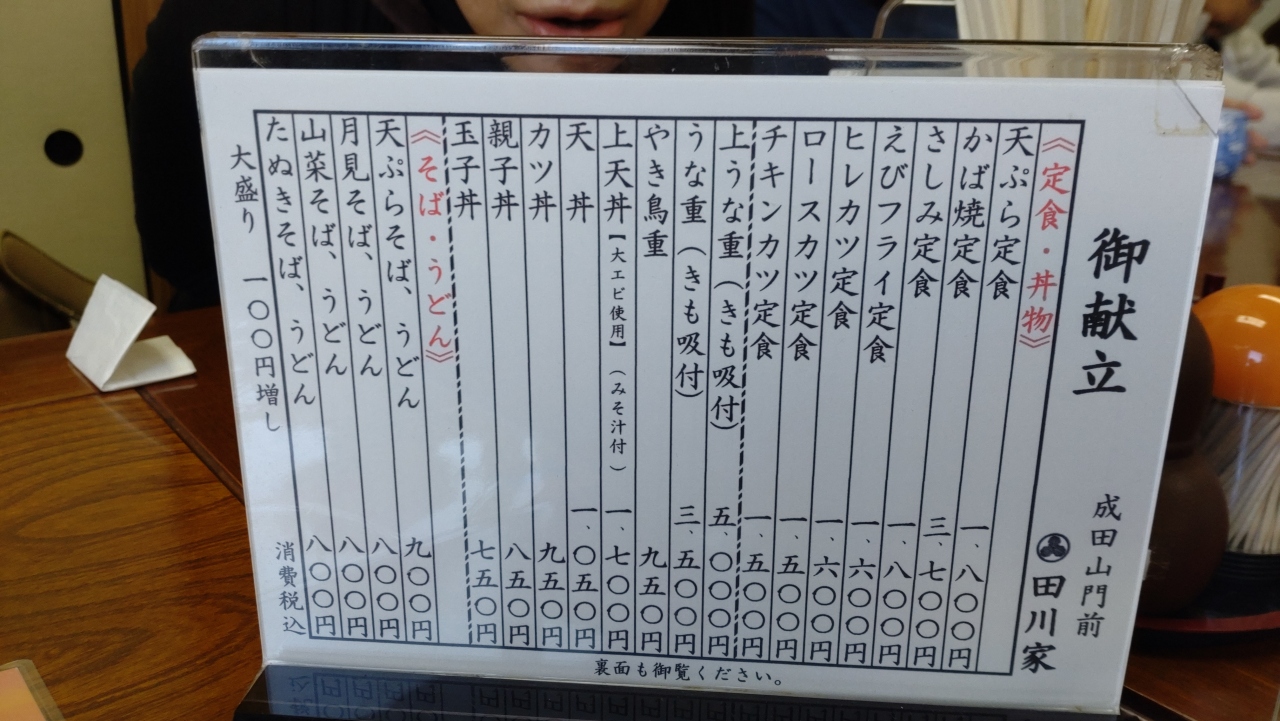 御献立
成田山門前
田川家
《定食・丼物》
天ぷら定食 一、八〇〇円
かば焼定食 三、七〇〇円
さしみ定食 一、八〇〇円
えびフライ定食 一、六〇〇円
ヒレカツ定食 一、六〇〇円
ロースカツ定食 一、五〇〇円
チキンカツ定食 一、五〇〇円
上うな重(きも吸付) 五、〇〇〇円
うな重(きも吸付) 三、五〇〇円
やき鳥重 九五〇円
上天丼【大エビ使用】(みそ汁付) 一、七〇〇円
天 丼 一、〇五〇円
カツ丼 九五〇円
親子丼 八五〇円
玉子丼 七五〇円
《そば・うどん》
天ぷらそば、うどん 九〇〇円
月見そば、うどん 八〇〇円
山菜そば、うどん 八〇〇円
たぬきそば、うどん 八〇〇円
大盛り 一〇〇円増し
消費税込
裏面も御覧ください。